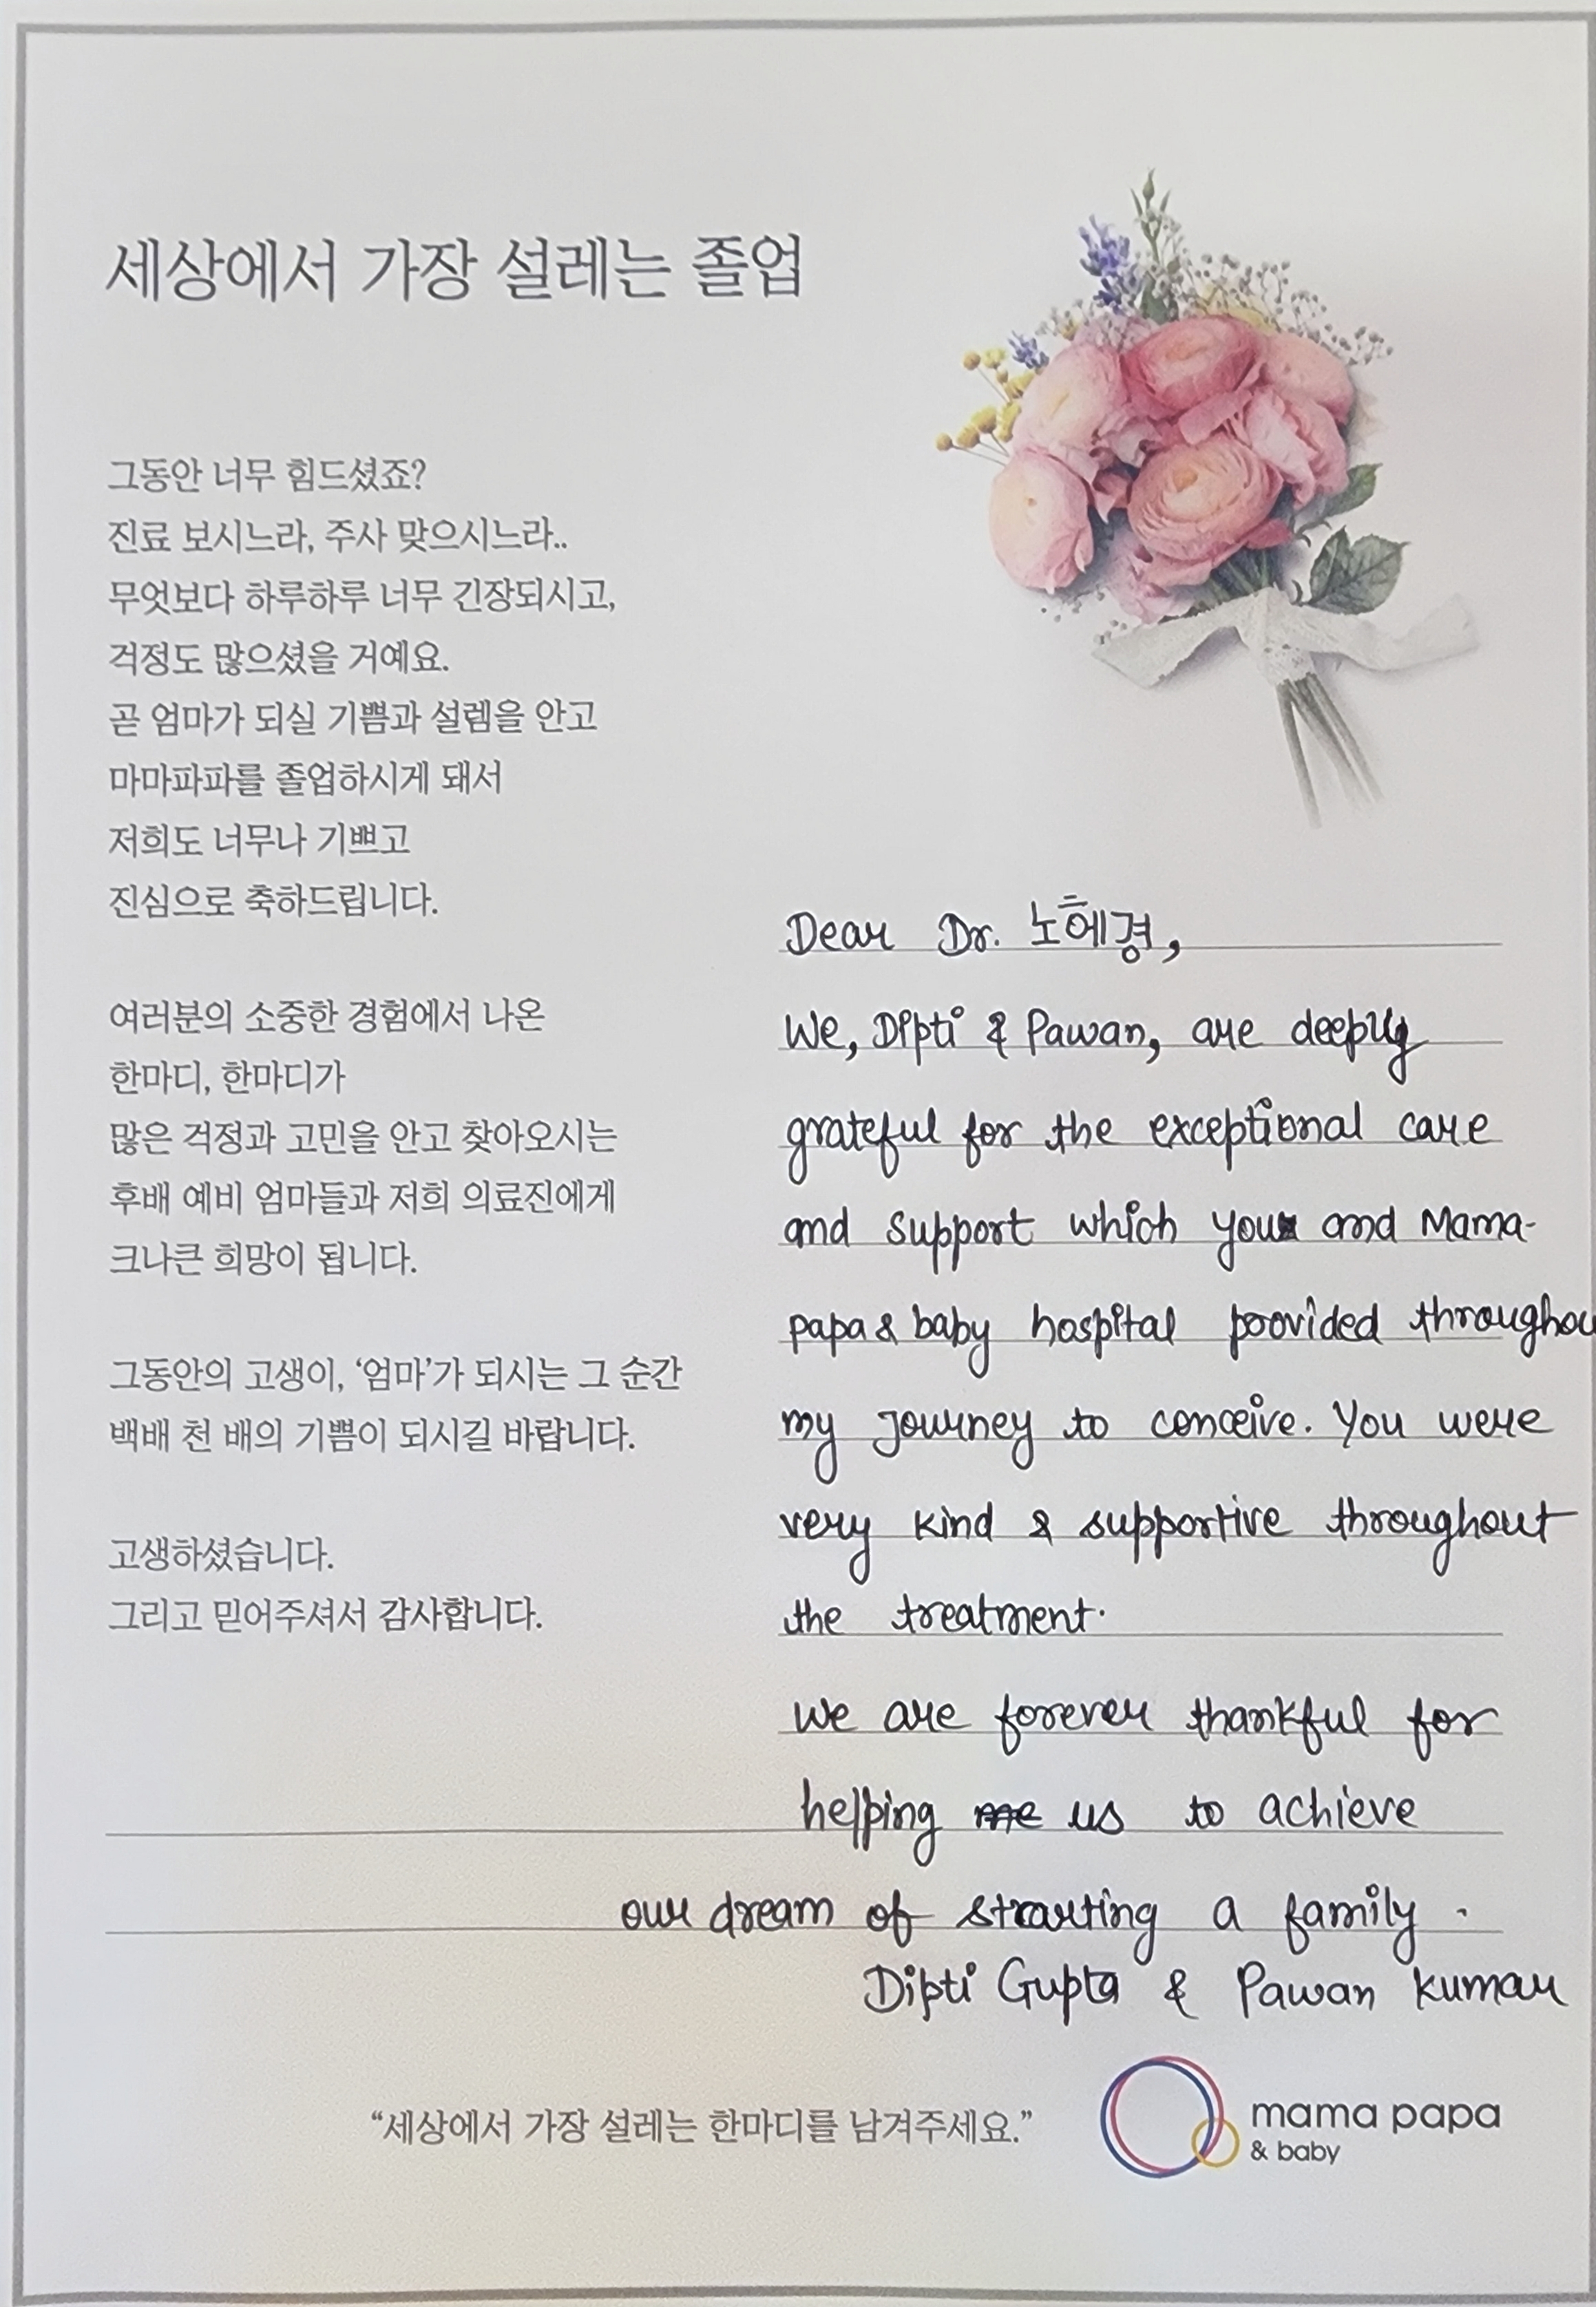 세상에서 가장 설레는 졸업
그동안 너무 힘드셨죠?
진료 보시느라, 주사 맞으시느라..
무엇보다 하루하루 너무 긴장되시고,
걱정도 많으셨을 거예요.
곧 엄마가 되실 기쁨과 설렘을 안고
마마파파를 졸업하시게 돼서
저희도 너무나 기쁘고
진심으로 축하드립니다.
여러분의 소중한 경험에서 나온
한마디, 한마디가
많은 걱정과 고민을 안고 찾아오시는
후배 예비 엄마들과 저희 의료진에게
크나큰 희망이 됩니다.
그동안의 고생이, ‘엄마’가 되시는 그 순간
백배 천 배의 기쁨이 되시길 바랍니다.
고생하셨습니다.
그리고 믿어주셔서 감사합니다.
Dear Dr. 노혜경,
We, Dipti & Pawan, are deeply
grateful for the exceptional care
and support which you and Mama-
papa & baby hospital provided throughou
my journey to conceive. You were
very kind & supportive throughout
the treatment.
We are forever thankful for
helping me us to achieve
our dream of starting a family.
Dipti Gupta & Pawan Kumar
“세상에서 가장 설레는 한마디를 남겨주세요.”
mama papa
& baby